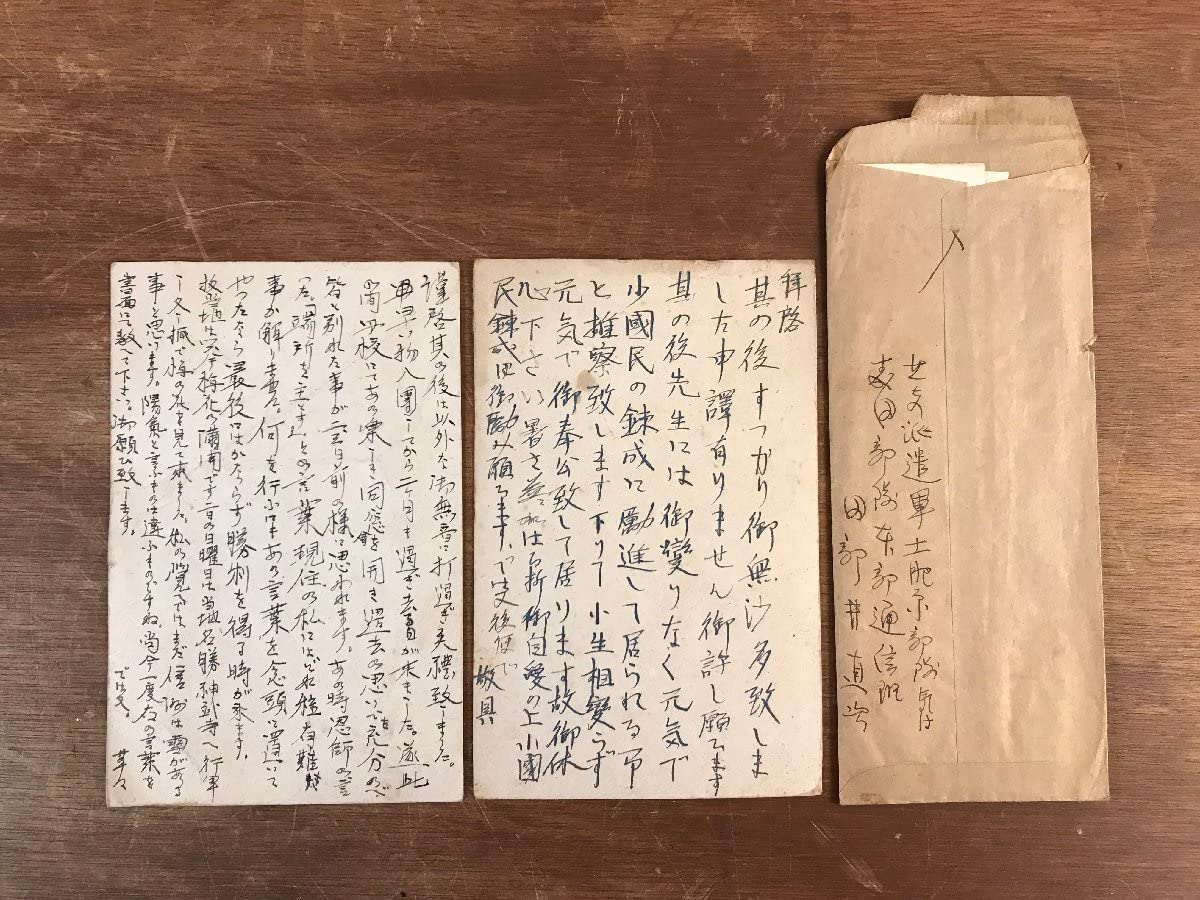 北支派遣軍土肥原部隊気付
部隊本部通信班
田部井
拝啓
其の後すっかり御無沙多致しま
した申譯有りません、御許し願ひます
其の後先生には御變りなく元気で
小國民の錬成に勵進して居られる事
と推察致します下りて小生相變らず
元気で御奉公致して居ります故御休
心下さい 暑さ は折御自愛の上小國
民錬成に御勵み願ひます、では又後便で
敬具
謹啓其の後は以外な御無音に打過ぎ失禮致しました。
入團してから二ヶ月も過ぎ去 が来ました。
あの寒い 同窓 を開き過去の思い 充分のべ
皆と別れた事が二三日前の様に思われます。あの時恩師の言
った「端所を主とせよ」との言葉現住の私には 難
事が解りました。何を行ふにもあの言葉を念頭に置いて
やったなら最後にはかならず勝利を得る時が来ます。
梅花 満開です 日の日曜日は当地名勝神武寺へ行軍
で梅の花を見て来ました。私の だ信 は があ
事と思います。陽気と言ふものは違ふものですね尚今一度右の言葉を
書面にて教へて下さい。御願ひ致します。
では又。 草々